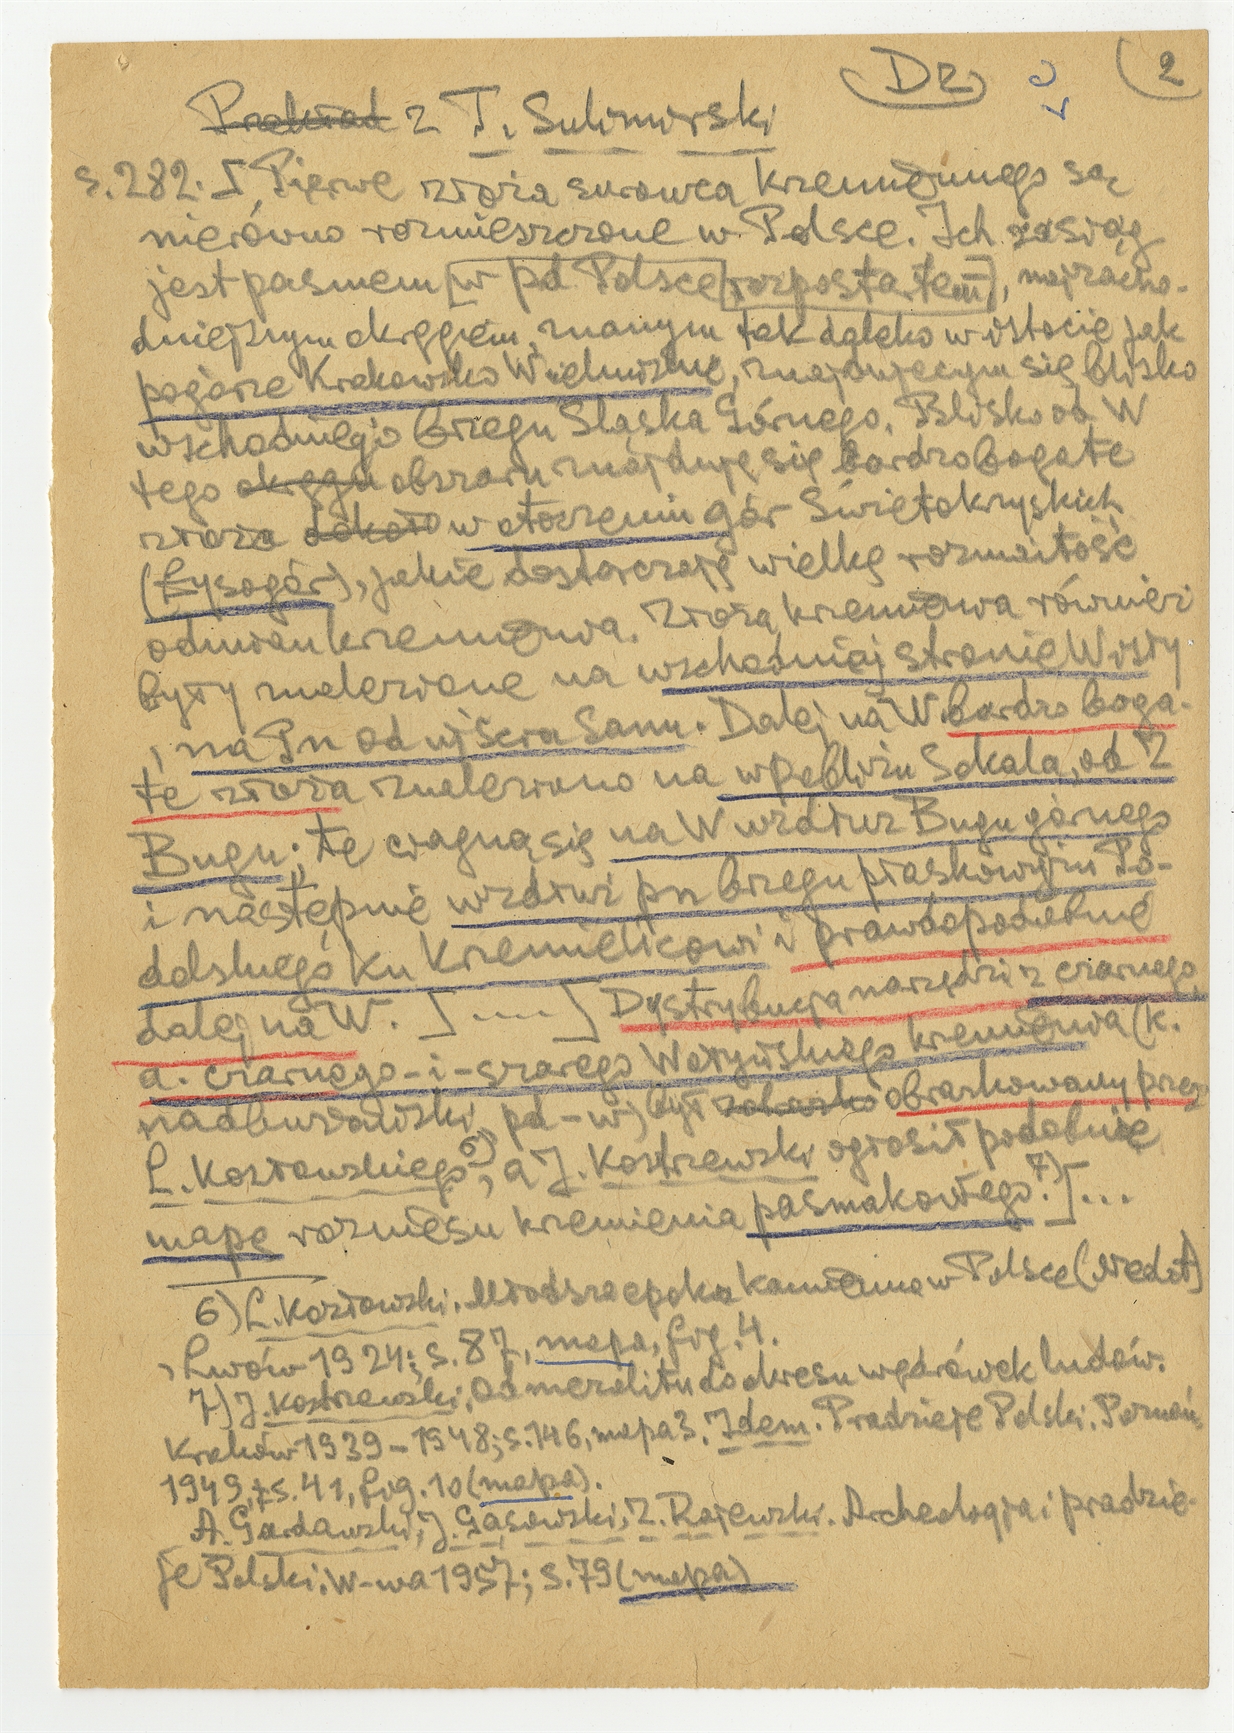 D2 2
Przekład z T. Sulimirski
s. 282. [„Pierwe złoża surowca krzemiennego są
nierówno rozmieszczone w Polsce. Ich zasiąg
jest pasmem [w pd Polsce] [rozpostartem], najzacho-
dniejszym okręgiem, znanym tak daleko w istocie jak
pogórze Krakowsko Wieluńskie, znajdującym się blisko
wschodniego brzegu Śląska Górnego. Blisko od W
tego okręgu obszaru znajdują się bardzo bogate
złoża dokoło w otoczeniu gór Świętokrzyskich
(Łysogór), jakie dostarczają wielką rozmaitość
odmian krzemienia. Złoża krzemienia również
były znalezione na wschodniej stronie Wisły
, na Pn od ujścia Sanu. Dalej na W. bardzo boga-
te złoża znaleziono na w pobliżu Sokala, od Z
Bugu; te ciągną się na W wzdłuż Bugu górnego
i następnie wzdłuż pn brzegu piaskowyżu Po-
dolskiego ku Krzemieńcowi i prawdopodobnie
dalej na W. ]----[ Dystrybucja narzędzi z czarnego,
a. czarnego-i-szarego Wołyńskiego krzemienia (k.
nadbużański, pd-w) był obrazkowany przez
L. Kozłowskiego 6), a J. Kostrzewski ogłosił podobnie
mapę rozniesu krzemienia pasmakowego. 7)]...
6) L. Kozłowski. Młodsza epoka kamienna w Polsce (Neolit)
, Lwów 1924; s. 87, mapa, fig. 4.
7) J. Kostrzewski, Od mezolitu do okresu wędrówek ludów.
Kraków 1939-1948; s. 146, mapa 3. Idem. Pradzieje Polski. Poznań,
1949, s. 41, fig. 10 (mapa).
A. Gardawski, J. Gąsowski, Z. Rajewski. Archeologia i pradzie-
je Polski. W-wa 1957; s. 79 (mapa)